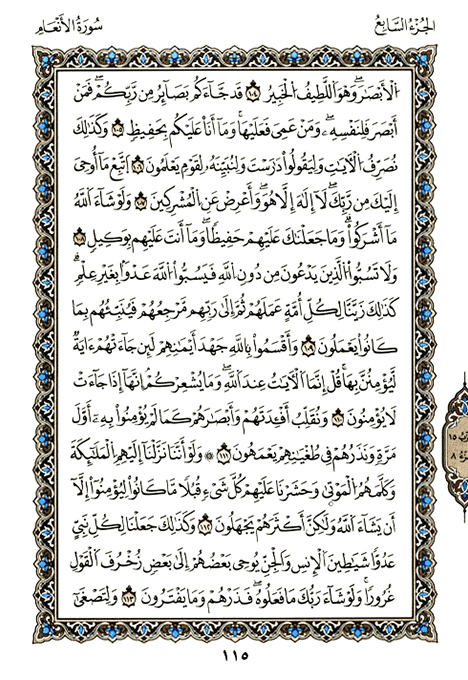 الجزء السابع
سورة الأنعام
الأبصار وهو اللطيف الخبير ١٠٤ قد جاءكم بصائر من ربكم فمن
أبصر فلنفسه ومن عمي فعليها وما أنا عليكم بحفيظ ١٠٥ وكذلك
نصرف الآيات وليقولوا درست ولنبينه لقوم يعلمون ١٠٦ اتبع ما أوحي
إليك من ربك لا إله إلا هو وأعرض عن المشركين ١٠٧ ولو شاء الله
ما أشركوا وما جعلناك عليهم حفيظا وما أنت عليهم بوكيل ١٠٨
ولا تسبوا الذين يدعون من دون الله فيسبوا الله عدوا بغير علم
كذلك زينا لكل أمة عملهم ثم إلى ربهم مرجعهم فينبئهم بما
كانوا يعملون ١٠٩ وأقسموا بالله جهد أيمانهم لئن جاءتهم آية
ليؤمنن بها قل إنما الآيات عند الله وما يشعركم إنها إذا جاءت
لا يؤمنون ١١٠ ونقلب أفئدتهم وأبصارهم كما لم يؤمنوا به أول
مرة ونذرهم في طغيانهم يعمهون ١١١ ۞ ولو أننا نزلنا إليهم الملائكة
وكلمهم الموتى وحشرنا عليهم كل شيء قبلا ما كانوا ليؤمنوا إلا
أن يشاء الله ولكن أكثرهم يجهلون ١١٢ وكذلك جعلنا لكل نبي
عدوا شياطين الإنس والجن يوحي بعضهم إلى بعض زخرف القول
غرورا ولو شاء ربك ما فعلوه فذرهم وما يفترون ١١٣ ولتصغى
١١٥